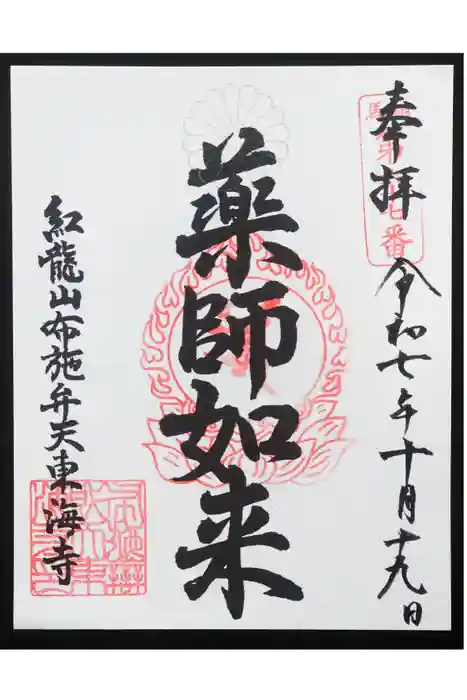 奉拝
令和七年十月十九日
薬師如来
紅龍山布施弁天東海寺